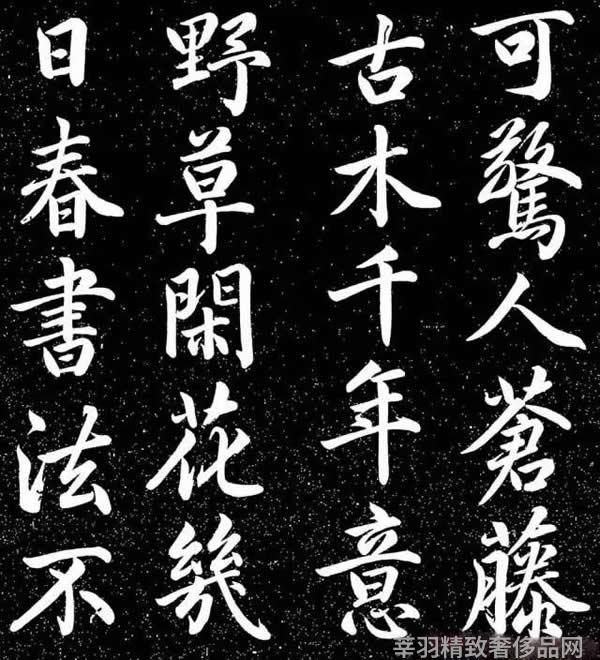 可驚人蒼藤
古木千年意
野草閑花幾
日春書法不
莘羽精致奢侈品网